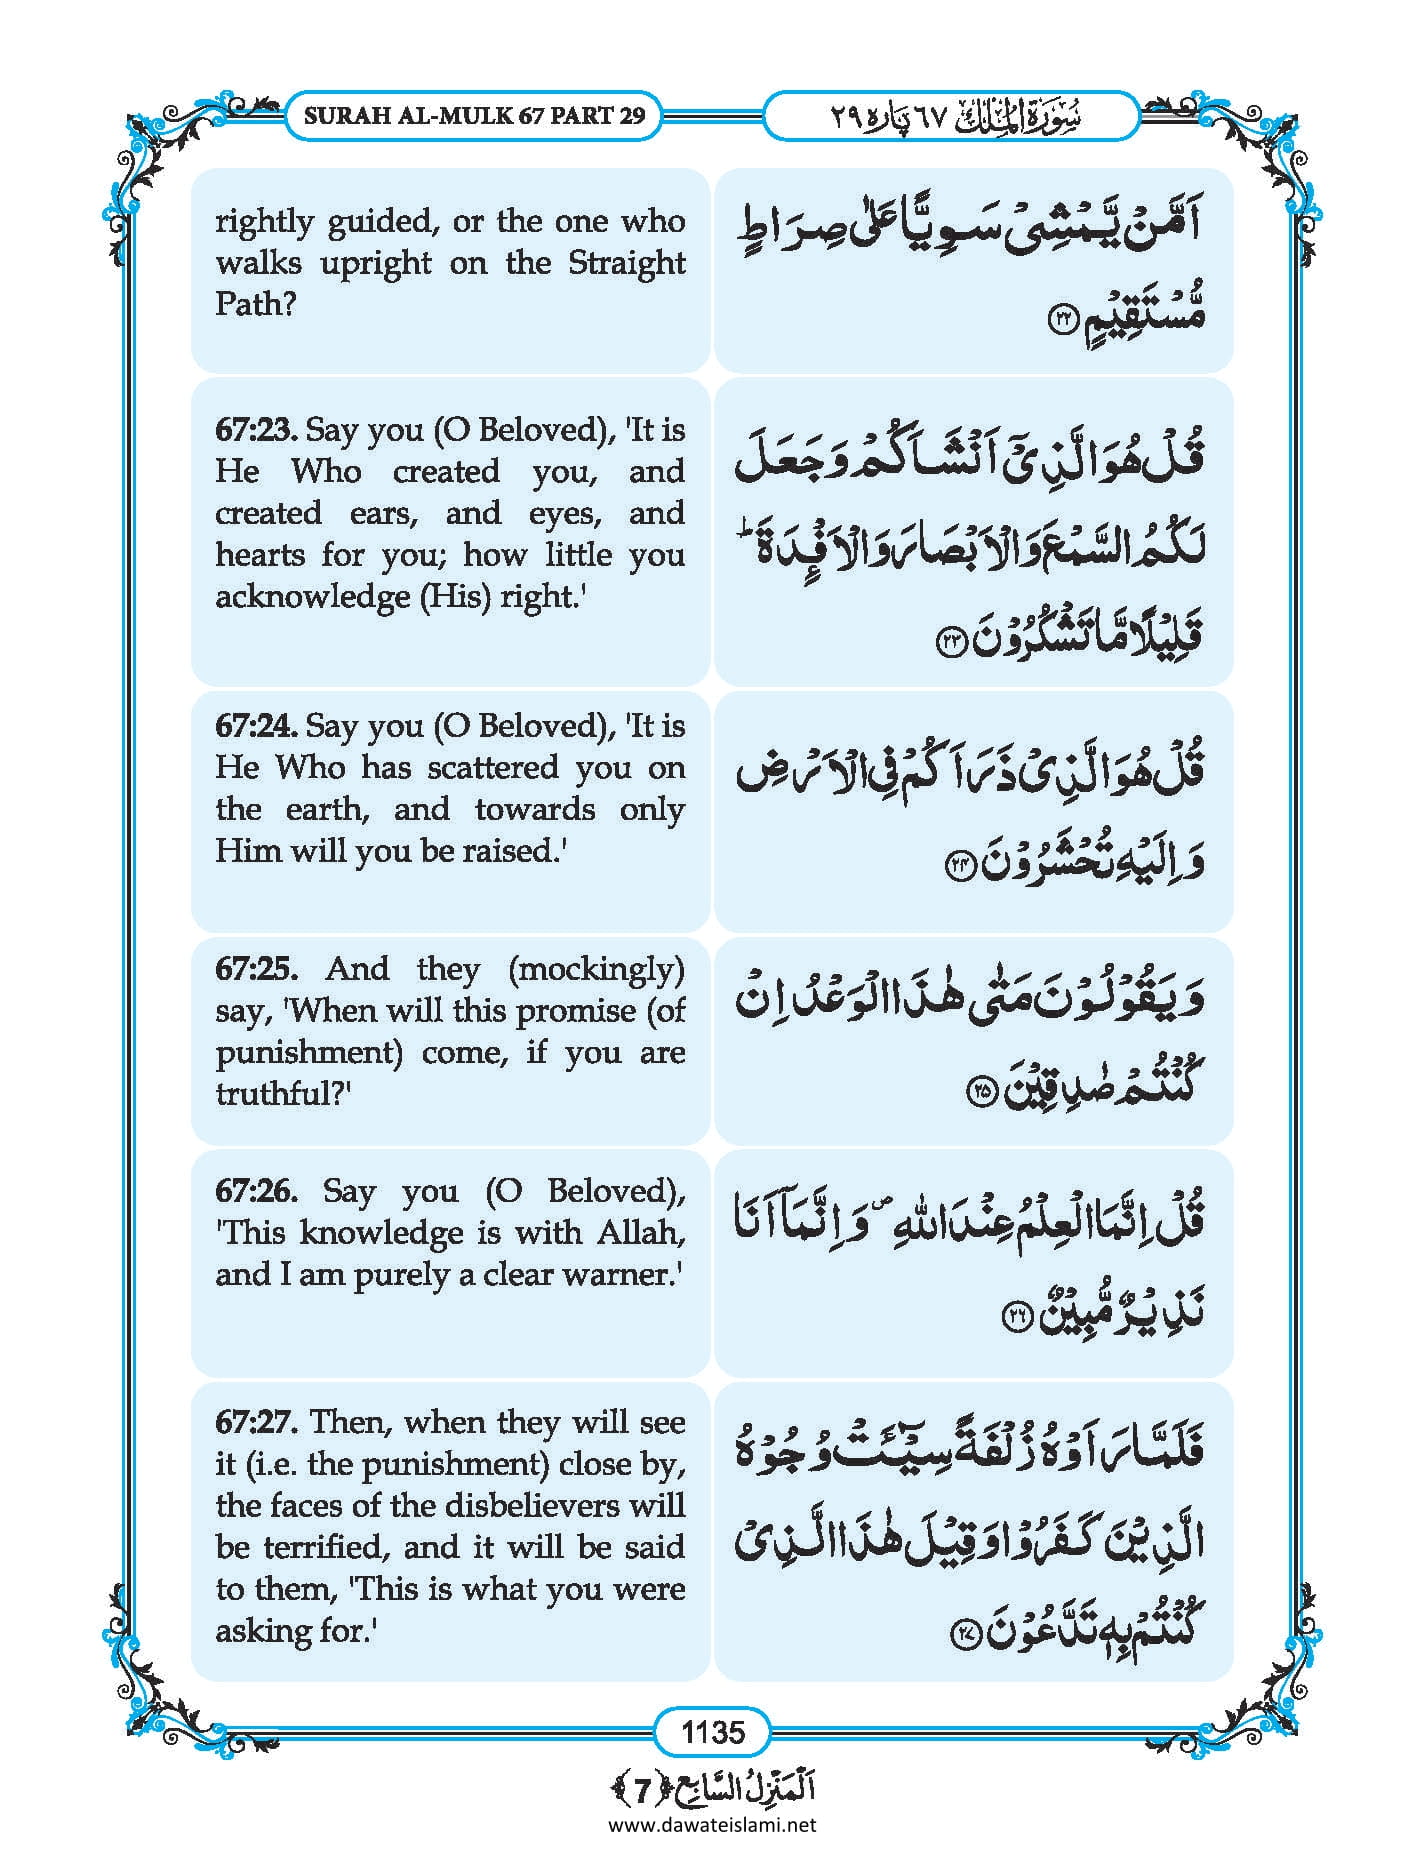 SURAH AL-MULK 67 PART 29
سُوْرَةُ الْمُلْك ٦٧ پَارَہ ٢٩
rightly guided, or the one who
walks upright on the Straight
Path?
اَمَّنْ یَّمْشِیْ سَوِیًّا عَلٰی صِرَاطٍ
مُّسْتَقِیْمٍ ﴿۲۲﴾
67:23. Say you (O Beloved), 'It is
He Who created you, and
created ears, and eyes, and
hearts for you; how little you
acknowledge (His) right.'
قُلْ هُوَ الَّذِیْۤ اَنْشَاَكُمْ وَ جَعَلَ
لَكُمُ السَّمْعَ وَ الْاَبْصَارَ وَ الْاَفْـِٕدَةَ ؕ
قَلِیْلًا مَّا تَشْكُرُوْنَ ﴿۲۳﴾
67:24. Say you (O Beloved), 'It is
He Who has scattered you on
the earth, and towards only
Him will you be raised.'
قُلْ هُوَ الَّذِیْ ذَرَاَكُمْ فِی الْاَرْضِ
وَ اِلَیْهِ تُحْشَرُوْنَ ﴿۲۴﴾
67:25. And they (mockingly)
say, 'When will this promise (of
punishment) come, if you are
truthful?'
وَ یَقُوْلُوْنَ مَتٰی هٰذَا الْوَعْدُ اِنْ
كُنْتُمْ صٰدِقِیْنَ ﴿۲۵﴾
67:26. Say you (O Beloved),
'This knowledge is with Allah,
and I am purely a clear warner.'
قُلْ اِنَّمَا الْعِلْمُ عِنْدَ اللّٰهِ ۪ وَ اِنَّمَاۤ اَنَا
نَذِیْرٌ مُّبِیْنٌ ﴿۲۶﴾
67:27. Then, when they will see
it (i.e. the punishment) close by,
the faces of the disbelievers will
be terrified, and it will be said
to them, 'This is what you were
asking for.'
فَلَمَّا رَاَوْهُ زُلْفَةً سِیْٓـَٔتْ وُجُوْهُ
الَّذِیْنَ كَفَرُوْا وَ قِیْلَ هٰذَا الَّذِیْ
كُنْتُمْ بِهٖ تَدَّعُوْنَ ﴿۲۷﴾
1135
اَلْمَنْزِلُ السَّابِع ﴿7﴾
www.dawateislami.net